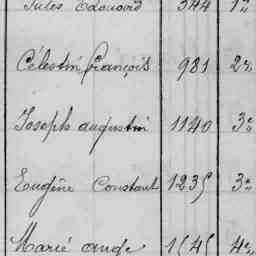 Jules Edouard 344 1re
Célestin François 981 2e
Joseph augustin 1140 3e
Eugène Constant 1235 3e
Marie ange 1545 4e